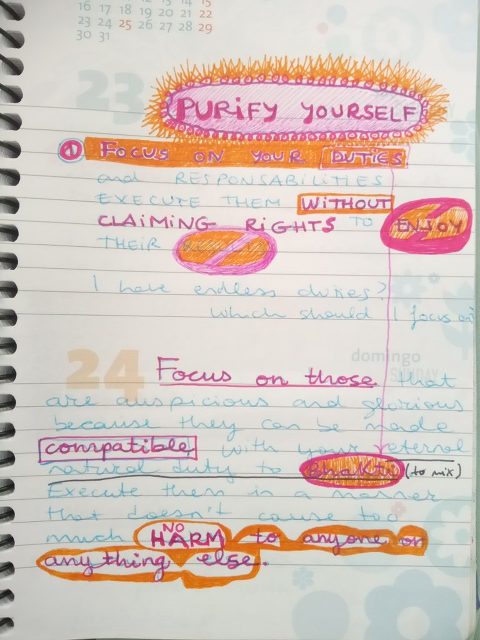 16 17 18 19 20 21 22
23 24 25 26 27 28 29
30 31
23
PURIFY YOURSELF
1 FOCUS ON YOUR DUTIES
and RESPONSABILITIES
EXECUTE THEM WITHOUT
CLAIMING RIGHTS TO ENJOY
THEIR
I have endless duties?
Which should I focus on?
24
domingo
SUNDAY
Focus on those that
are auspicious and glorious
because they can be made
compatible with your eternal
natural duty to Bhakti (to mix)
Execute them in a manner
that doesn't cause too
much NO HARM to anyone or
anything else.